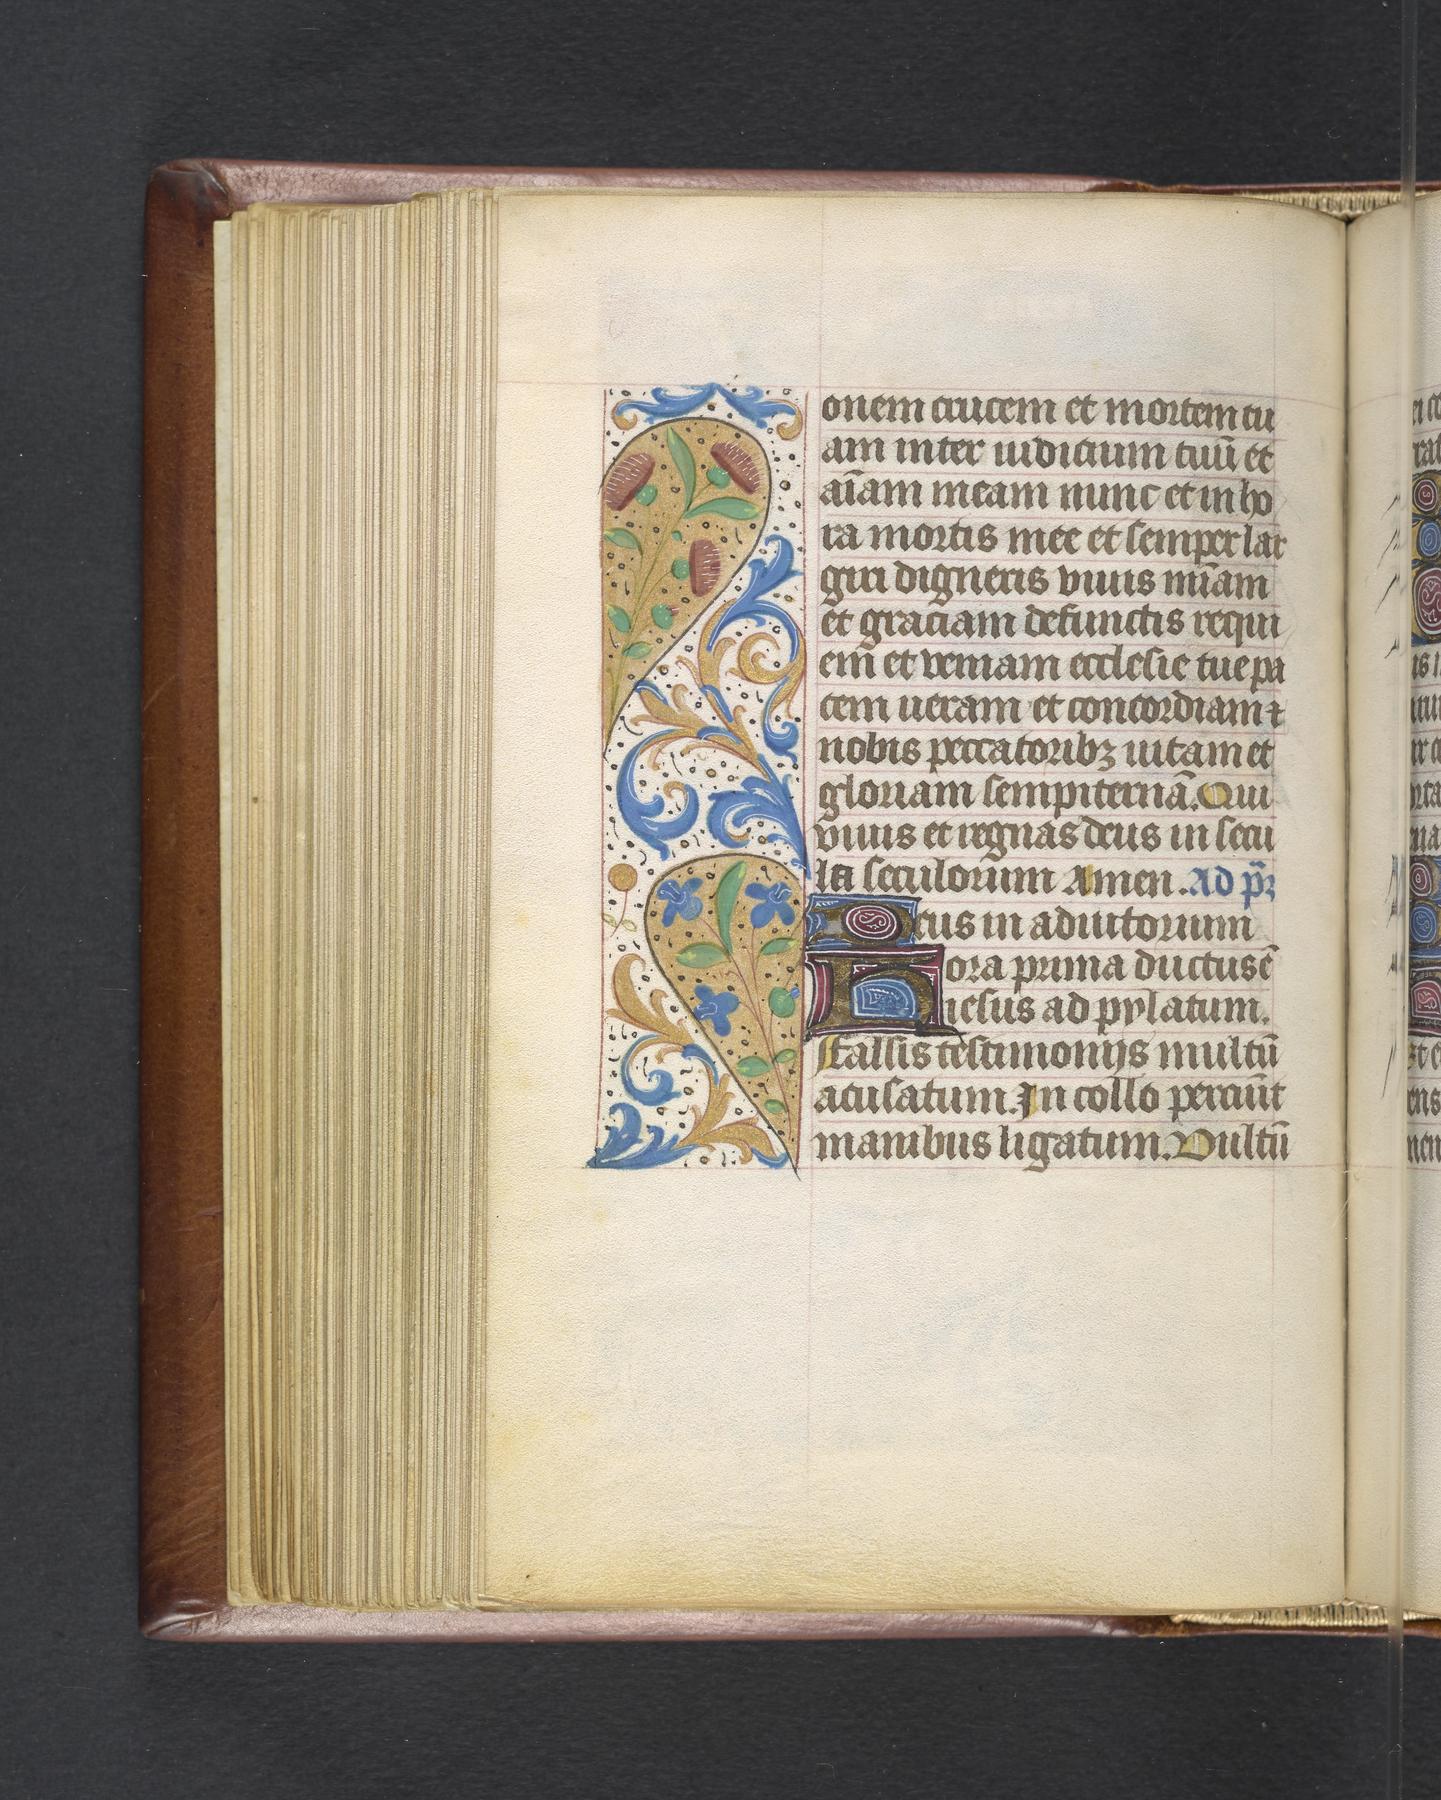 onem crucem et mortem tu
am inter iudicium tuū et
aīam meam nunc et in ho
ra mortis mee et semper lar
giri digneris viuis mīam
et graciam defunctis requi
em̄ et veniam ecclesie tue pa
cem ueram et concordiam ⁊
nobis peccatoribꝫ uitam et
gloriam sempiternā. Qui
viuis et regnas deus in secu
la seculorum Amen. Ad pͥꝛ
eus in adiutorium
Hora prima ductus ē
iesus ad pylatum.
Falsis testimonijs multū
acusatum. In collo perciūt
manibus ligatum. Vultū